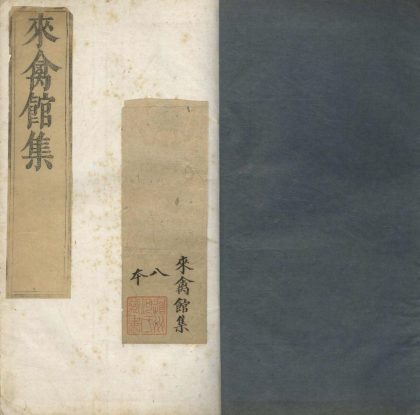 來禽館集
來禽館集
八本